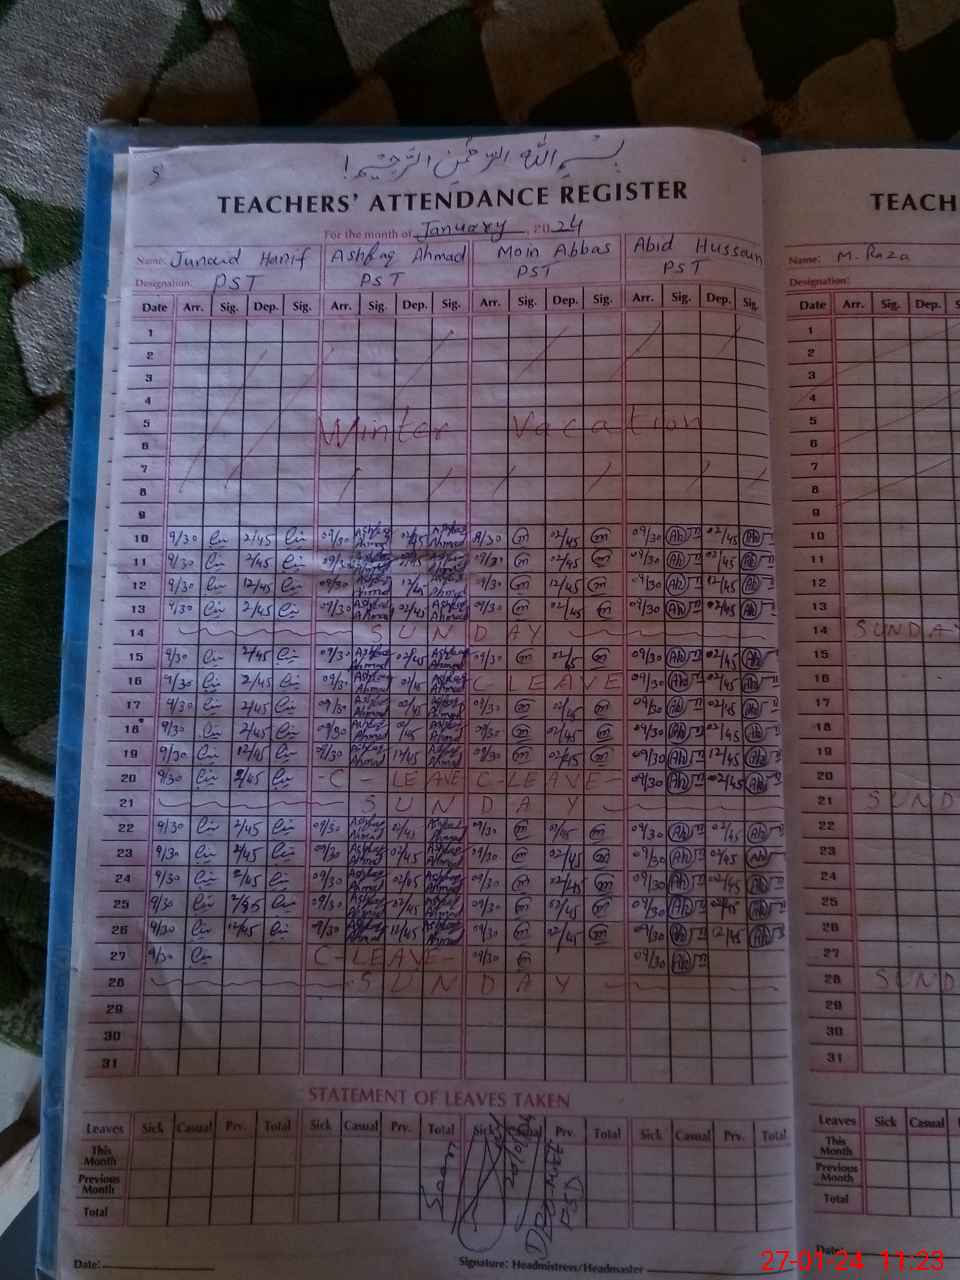 بسم اللہ الرحمٰن الرحیم!
TEACHERS' ATTENDANCE REGISTER
For the month of January, 2024
Name: Junaid Hanif Ashfaq Ahmad Moin Abbas Abid Hussain
Designation: PST PST PST PST
Date Arr. Sig. Dep. Sig. Arr. Sig. Dep. Sig. Arr. Sig. Dep. Sig. Arr. Sig. Dep. Sig.
1
2
3
4
5 Winter Vacation
6
7
8
9
10 9/30 2/45 09/30 Ashfaq Ahmad 02/45 Ashfaq Ahmad 09/30 m 02/45 m 09/30 Ah 02/45 Ah
11 9/30 2/45 09/30 Ashfaq Ahmad 02/45 Ashfaq Ahmad 09/30 m 02/45 m 09/30 Ah 02/45 Ah
12 9/30 12/45 09/30 Ashfaq Ahmad 12/45 Ashfaq Ahmad 09/30 m 12/45 m 09/30 Ah 12/45 Ah
13 9/30 2/45 09/30 Ashfaq Ahmad 02/45 Ashfaq Ahmad 09/30 m 02/45 m 09/30 Ah 02/45 Ah
14 SUNDAY
15 9/30 2/45 09/30 Ashfaq Ahmad 02/45 Ashfaq Ahmad 09/30 m 02/45 m 09/30 Ah 02/45 Ah
16 9/30 2/45 09/30 Ashfaq Ahmad 02/45 Ashfaq Ahmad C LEAVE 09/30 Ah 02/45 Ah
17 9/30 2/45 09/30 Ashfaq Ahmad 02/45 Ashfaq Ahmad 09/30 m 02/45 m 09/30 Ah 02/45 Ah
18 9/30 2/45 09/30 Ashfaq Ahmad Ashfaq Ahmad 09/30 m 02/45 m 09/30 Ah 02/45 Ah
19 9/30 12/45 09/30 Ashfaq Ahmad 12/45 Ashfaq Ahmad 09/30 m 02/45 m 09/30 Ah 12/45 Ah
20 9/30 2/45 -C- LEAVE C-LEAVE- 09/30 Ah 02/45 Ah
21 SUNDAY
22 9/30 2/45 09/30 Ashfaq Ahmad 02/45 Ashfaq Ahmad 09/30 m 02/45 m 09/30 Ah 02/45 Ah
23 9/30 2/45 09/30 Ashfaq Ahmad 02/45 Ashfaq Ahmad 09/30 m 02/45 m 09/30 Ah 02/45 Ah
24 9/30 2/45 09/30 Ashfaq Ahmad 02/45 Ashfaq Ahmad 09/30 m 02/45 m 09/30 Ah 02/45 Ah
25 9/30 2/45 09/30 Ashfaq Ahmad 02/45 Ashfaq Ahmad 09/30 m 02/45 m 09/30 Ah 02/45 Ah
26 9/30 12/45 09/30 Ashfaq Ahmad Ashfaq Ahmad 09/30 m 02/45 m 09/30 Ah 12/45 Ah
27 9/30 C-LEAVE- 09/30 m 09/30 Ah
28 SUNDAY
29
30
31
STATEMENT OF LEAVES TAKEN
Leaves Sick Casual Prv. Total Sick Casual Prv. Total Sick Prv. Total Sick Casual Prv. Total
This Month
Previous Month
Total
Date:
Signature: Headmistress/Headmaster
TEACH
Name: M. Raza
Designation:
Date Arr. Sig. Dep.
1
2
3
4
5
6
7
8
9
10
11
12
13
14 SUNDAY
15
16
17
18
19
20
21 SUND
22
23
24
25
26
27
28 SUND
29
30
31
Leaves Sick Casual
This Month
Previous Month
Total
Date:
27-01-24 11:23